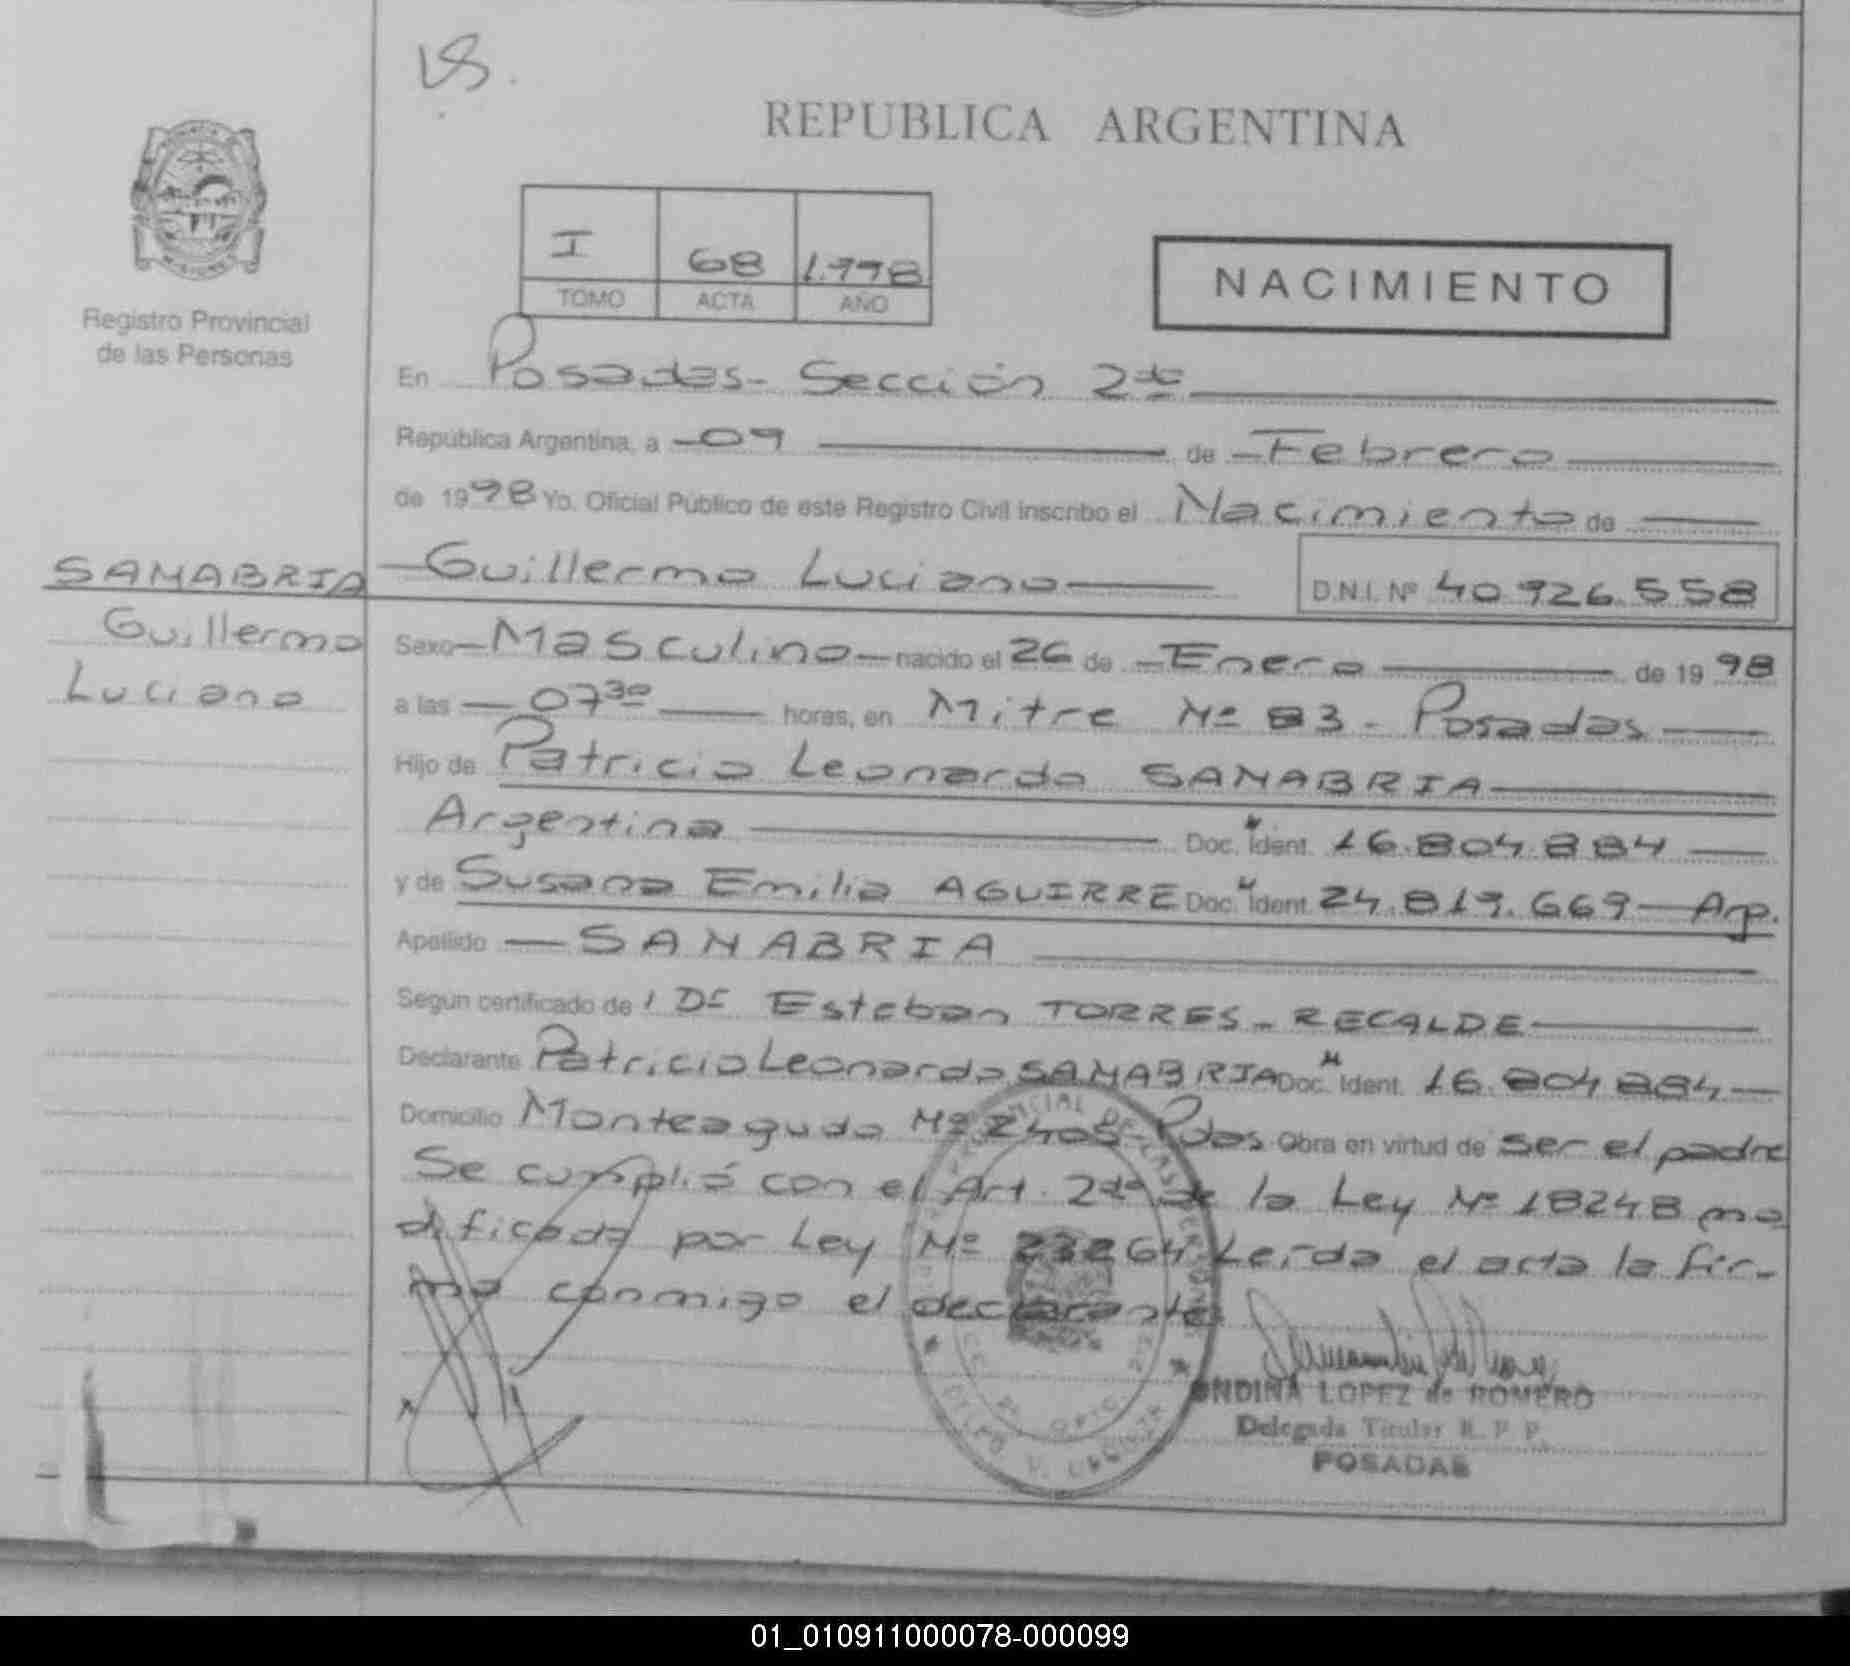 REPUBLICA ARGENTINA
MISIONES
Registro Provincial
de las Personas
I 68 1.998
TOMO ACTA AÑO
NACIMIENTO
En Posadas - Sección 2da
República Argentina, a 09 de Febrero
de 1998 Yo. Oficial Público de este Registro Civil inscribo el Nacimiento de
Guillermo Luciano D.N.I. Nº 40 926.558
SANABRIA
Guillermo
Luciano
Sexo Masculino nacido el 26 de Enero de 1998
a las 07 30 horas, en Mitre Nº 83 - Posadas
Hijo de Patricio Leonardo SANABRIA
Argentina Doc. Ident. 16.804.884
y de Susana Emilia AGUIRRE Doc. Ident. 24.819.669 - Arg.
Apellido SANABRIA
Según certificado de Dr Esteban TORRES - RECALDE
Declarante Patricio Leonardo SANABRIA Doc. Ident. 16.804.884
Domicilio Monteagudo Nº 2405 - Pdas Obra en virtud de ser el padre
Se cumplió con el Art. 2do de la Ley Nº 18248 mo
dificada por Ley Nº 23264. Leída el acta la fir-
ma conmigo el declarante
ONDINA LOPEZ de ROMERO
Delegada Titular R. P. P.
POSADAS
01_010911000078-000099